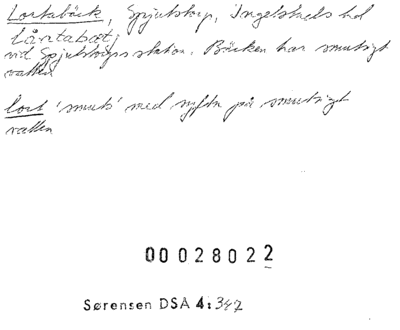 Lortabäck, Spjutstorp, Ingelstads hd
lårtabæt;
vid Spjutstorps station. Bäcken har smutsigt
vatten
lort 'smuts' med syftn på smutsigt
vatten
00028022
Sørensen DSA 4:347